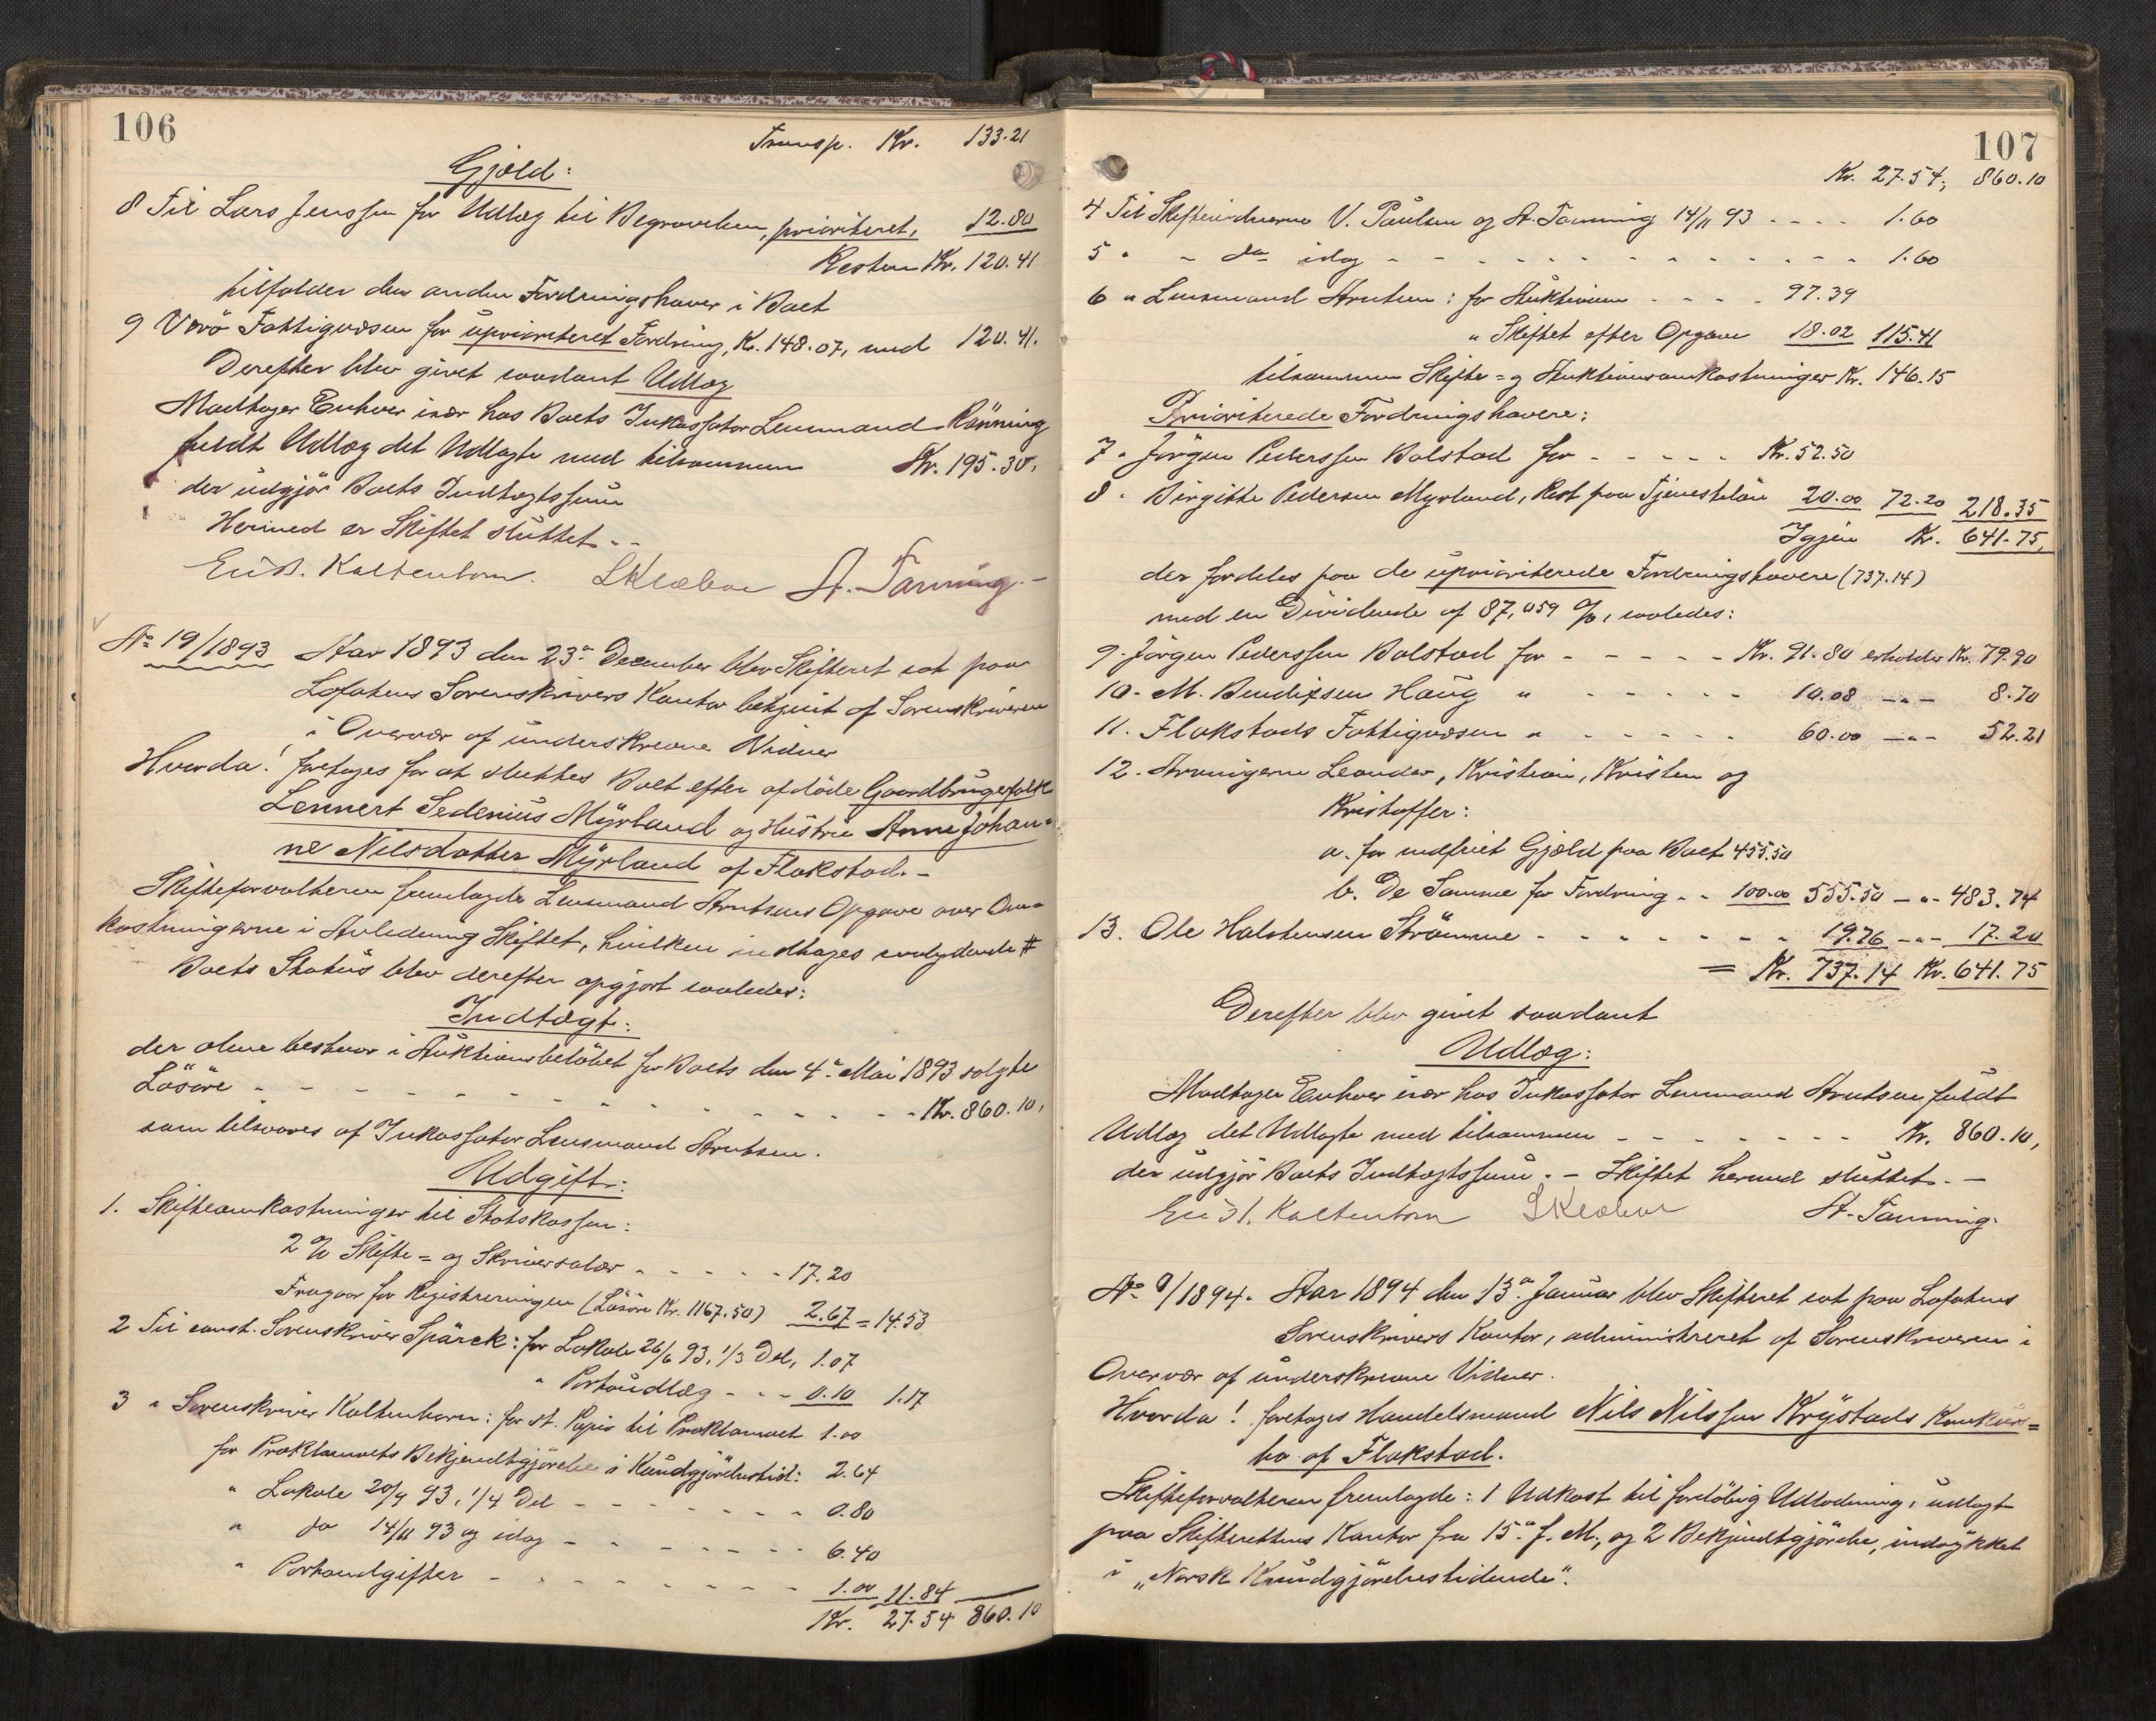 106
Transp. Kr. 133.21
Gjæld:
8 Til Lars Jenssen for Udlæg til Begravelsen, prioriteret, 12.80
Resten Kr. 120.41
tilfalder den anden Fordringshaver i Boet
9 Værö Fattigvæsen for uprioriteret Fordring, Kr. 148.07, med 120.41.
Derefter blev givet saadant Udlæg
Modtager Enhver især hos Boets Inkassator Lensmand Rönning
fuldt Udlæg det Udlagte med tilsammen Kr. 195.30,
der udgjör Boets Indtægtssum
Hermed er Skiftet sluttet.-
Kaltenborn. SKlæboe A. Tanning.-
No 19/1893 Aar 1893 den 23de December blev Skifteret sat paa
Lofotens Sorenskrivers Kontor betjent af Sorenskriveren
i Overvær af underskrevne Vidner
Hvorda! foretages for at sluttes Boet efter afdöde Gaardbrugerfolk
Lennert Sedenius Myrland og Hustru Anne Johan-
ne Nilsdatter Myrland af Flakstad.-
Skifteforvalteren fremlagde Lensmand Arntsens Opgave over Om-
kostningerne i Anledning Skiftet, hvilken indtages saalydende #
Boets Status blev derefter opgjort saaledes:
Indtægt:
der alene bestaar i Auktionsbelöbet for Boets den 4de Mai 1893 solgte
Lösöre - - - - Kr. 860.10,
som tilsvares af Inkassator Lensmand Arntsen.
Udgift:
1. Skifteomkostninger til Statskassen:
2 % Skifte= og Skriversalær - - - - 17.20
Fragaar for Registreringen (Lösöre Kr. 1167.50) 2.67 = 14.53
2 Til const. Sorenskriver Spärck: for Lokale 26/6 93, 1/3 Del, 1.07
" Portoudlæg - - - 0.10 1.17
3 " Sorenskriver Kaltenborn: for st. Papir til Proklamaet 1.00
for Proklamaets Bekjendtgjörelse i Kundgjörelsestid: 2.64
" Lokale 20/9 93, 1/4 Del - - - - 0.80
" do 14/11 93 og idag - - - - 6.40
" Portoudgifter - - - - 1.00 11.84
Kr. 27.54 860.10
107
Kr. 27.54, 860.10
4 Til Skiftevidnerne V. Paulsen og A. Tanning 14/11 93 - - - - 1.60
5 " - do idag - - - - 1.60
6 " Lensmand Arntsen: for Auktionen - - - - 97.39
" Skiftet efter Opgave 18.02 115.41
tilsammen Skifte= og Auktionsomkostninger Kr. 146.15
Prioriterede Fordringshavere:
7 " Jörgen Pederssen Bolstad for - - - - Kr. 52.50
8 " Birgitte Pedersen Myrland, Rest paa Tjenestelön 20.00 72.20 218.35
Igjen Kr. 641.75,
der fordeles paa de uprioriterede Fordringshavere (737.14)
med en Dividende af 87,059 %, saaledes:
9. Jörgen Pederssen Bolstad for - - - - Kr. 91.80 erholder Kr. 79.90
10. M. Bendixsen Haug " - - - - 10.08 -"- 8.70
11. Flakstads Fattigvæsen " - - - - 60.00 -"- 52.21
12. Arvingerne Leander, Kristian, Kristen og
Kristoffer:
a. for indfriet Gjæld paa Boet 455.50
b. De Samme for Fordring - - 100.00 555.50 -"- 483.74
13. Ole Halstensen Strömme - - - - 19.76 -"- 17.20
= Kr. 737.14 Kr. 641.75
Derefter blev givet saadant
Udlæg:
Modtager Enhver især hos Inkassator Lensmand Arntsen fuldt
Udlæg det Udlagte med tilsammen - - - - Kr. 860.10,
der udgjör Boets Indtægtssum. - Skiftet hermed sluttet. -
Kaltenborn SKlæboe A. Tanning.
No 9/1894. Aar 1894 den 13de Januar blev Skifteret sat paa Lofotens
Sorenskrivers Kontor, administreret af Sorenskriveren i
Overvær af underskrevne Vidner.
Hvorda! foretages Handelsmand Nils Nilssen Krystads Konkurs=
bo af Flakstad.
Skifteforvalteren fremlagde: 1 Udkast til foreløbig Udlodning, udlagt
paa Skifterettens Kontor fra 15de f. M., og 2 Bekjendtgjörelse, indrykket
i "Norsk Kundgjörelsestidende".